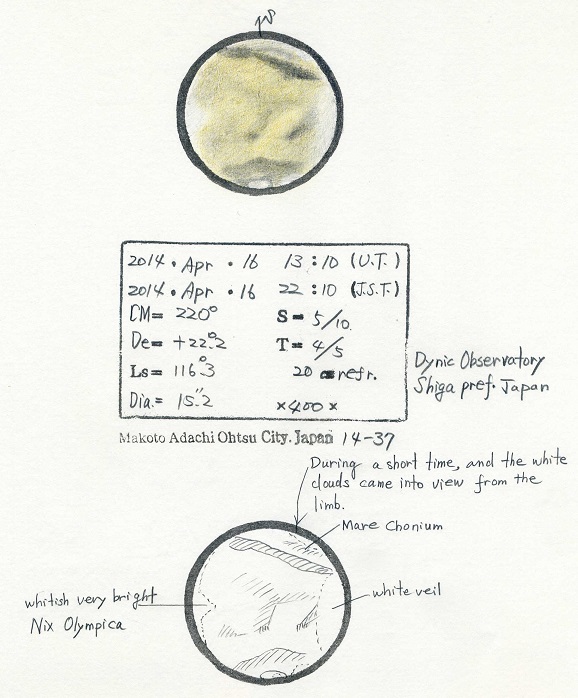 2014 . Apr . 16 13 : 10 (U.T.)
2014 . Apr . 16 22 : 10 (J.S.T.)
CM= 220°
S= 5/10
De= +22°.2
T= 4/5
Ls= 116°.3
20 cm refr.
Dia.= 15".2
×400 ×
Dynic Observatory
Shiga pref. Japan
Makoto Adachi Ohtsu City. Japan 14-37
During a short time, and the white
clouds came into view from the
limb.
Mare Chonium
whitish very bright
Nix Olympica
white veil